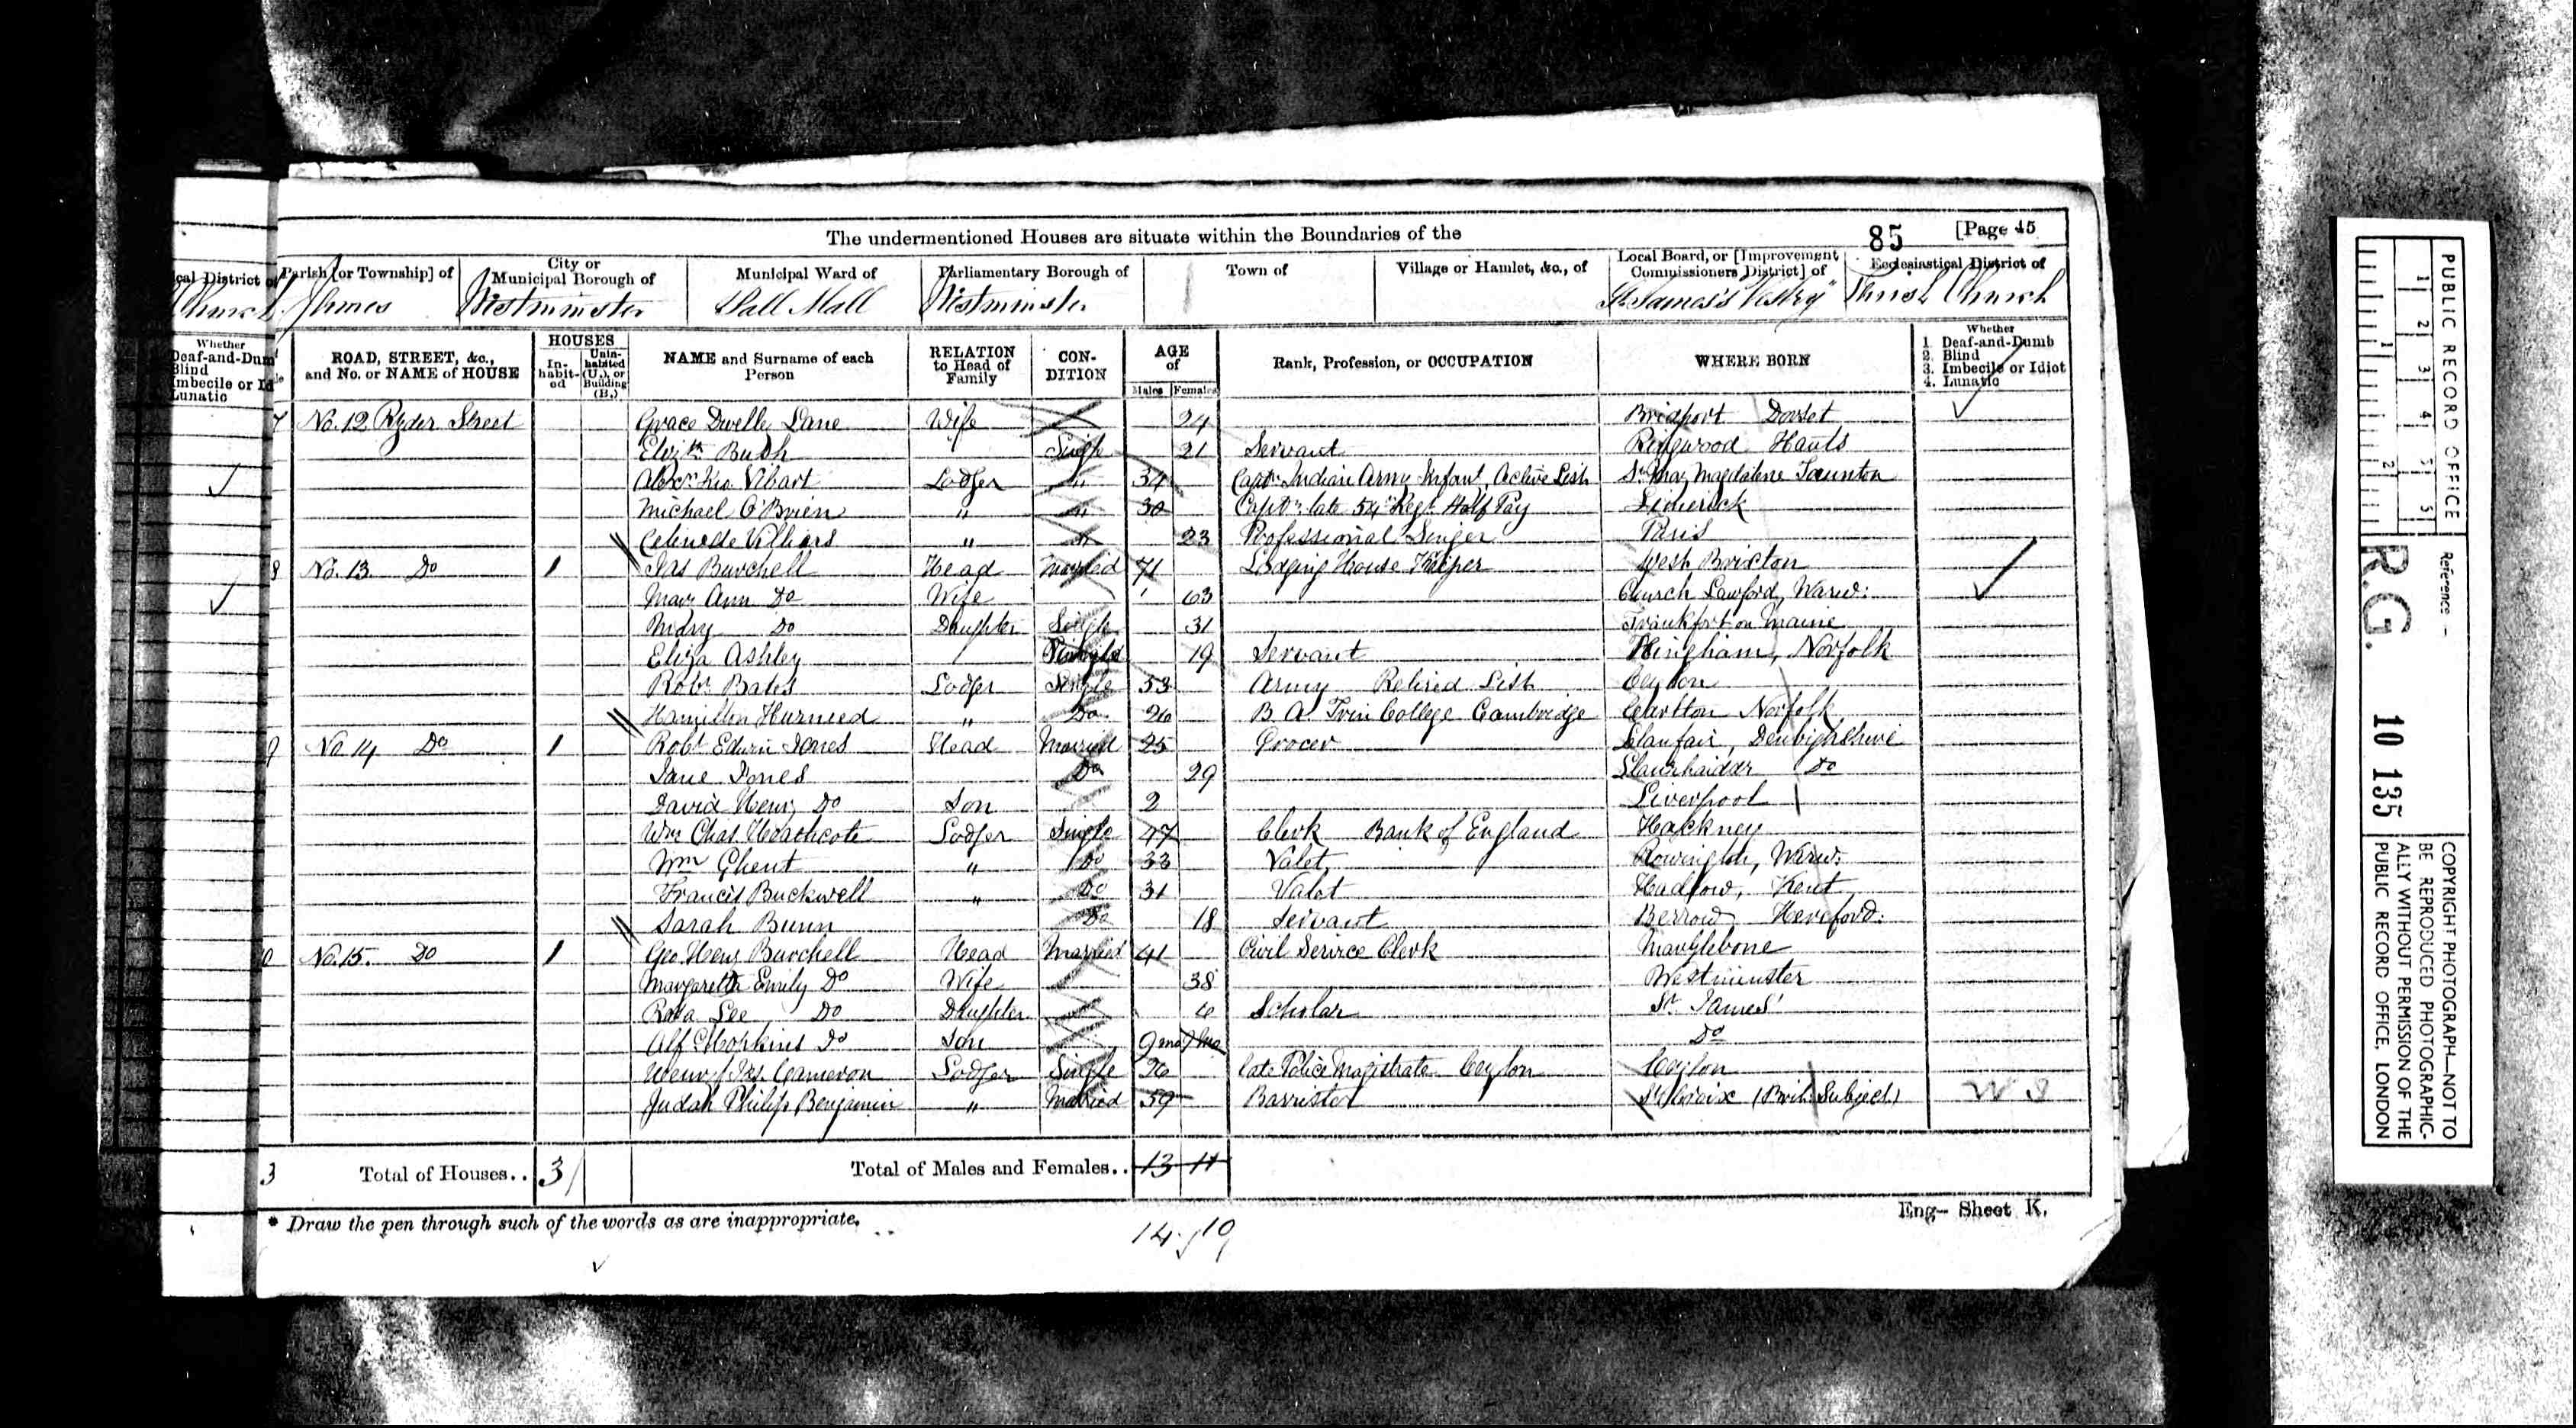 The undermentioned Houses are situate within the Boundaries of the
85 [Page 45
Parish [or Township] of City or Municipal Borough of Municipal Ward of Parliamentary Borough of Town of Village or Hamlet, &c., of Local Board, or [Improvement Commissioners District] of Ecclesiastical District of
James Westminster Pall Mall Westminster St. James's Vestry Parish Church
Whether Deaf-and-Dumb Blind Imbecile or Lunatic
ROAD, STREET, &c., and No. or NAME of HOUSE HOUSES Inhabited Uninhabited (U.), or Building (B.) NAME and Surname of each Person RELATION to Head of Family CONDITION AGE of Males Females Rank, Profession, or OCCUPATION WHERE BORN Whether 1. Deaf-and-Dumb 2. Blind 3. Imbecile or Idiot 4. Lunatic
7 No. 12 Ryder Street Grace Lane Wife 24 Bridport Dorset
Elizth Bush Single 21 Servant Ringwood Hants
Vibart Lodger " 34 Captn Indian Army Infant, Active List St Mary Magdalene Taunton
Michael O'Brien " " 30 Captn late 54 Regt Half Pay Limerick
de Villiers " " 23 Professional Singer Paris
8 No. 13 Do 1 Jas Burchell Head Married 71 Lodging House Keeper West Brixton
Mary Ann Do Wife 63 Church Lawford, Warw:
Mary Do Daughter Single 31 Frankfort on Maine
Eliza Ashley 19 Servant Hingham, Norfolk
Robt Bates Lodger Single 53 Army Retired List Ceylon
Hamilton " Do 26 B A Trin College Cambridge Norfolk
9 No. 14 Do 1 Robt Edwin Jones Head Married 25 Grocer Llanfair, Denbighshire
Jane Jones Do 29 Do
David Henry Do Son 2 Liverpool
Wm Chas Heathcote Lodger Single 47 Clerk Bank of England Hackney
Wm Ghent " Do 33 Valet Rowington, Warw:
Francis Buckwell " Do 31 Valet Hadlow, Kent
Sarah Bunn Do 18 Servant Berrow Hereford:
0 No. 15. Do 1 Geo Henry Burchell Head Married 41 Civil Service Clerk Marylebone
Emily Do Wife 38 Westminster
Rosa Lee Do Daughter 6 Scholar St James'
Alf Hopkins Do Son 9 mo Do
Henry Jas. Cameron Lodger Single 26 late Police Magistrate Ceylon Ceylon
Judah Philip Benjamin " Married 59 Barrister St Croix (Brit. Subject) W I
3 Total of Houses.. 3 Total of Males and Females.. 13 11
* Draw the pen through such of the words as are inappropriate.
Eng- Sheet K.
14 10
PUBLIC RECORD OFFICE
1 2 3 4 5
1 2
Reference -
R.G. 10 135
COPYRIGHT PHOTOGRAPH—NOT TO
BE REPRODUCED PHOTOGRAPHIC-
ALLY WITHOUT PERMISSION OF THE
PUBLIC RECORD OFFICE, LONDON